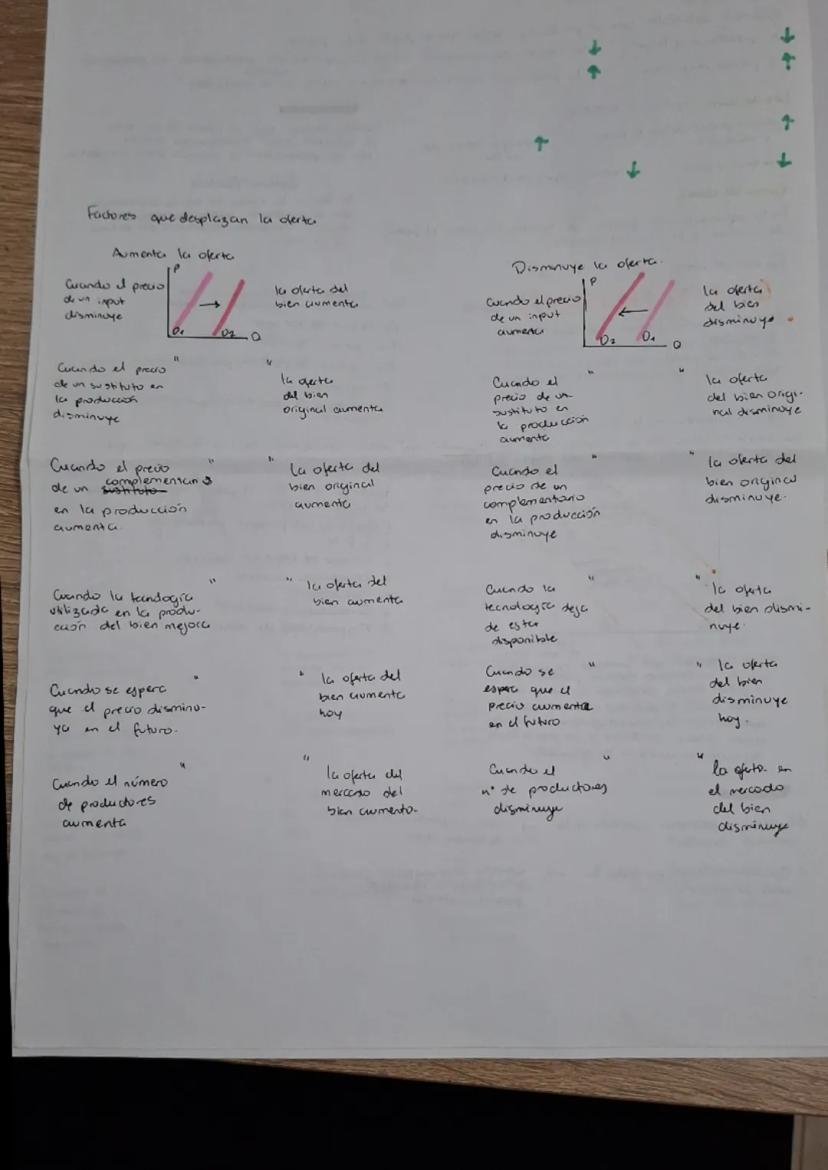 Factores que desplazan la oferta
Aumenta la oferta
Cuando el precio
de un input
disminuye
P
O1
O2
Q
la oferta del
bien aumenta
Cuando el precio
de un sustituto en
la producción
disminuye
"
"
la oferta
del bien
original aumenta
Cuando el precio
de un complementario
sustituto
en la producción
aumenta.
"
"
la oferta del
bien original
aumenta
Cuando la tecnología
utilizada en la produ-
cción del bien mejora
"
"
la oferta del
bien aumenta
Cuando se espera
que el precio disminu-
ya en el futuro.
"
"
la oferta del
bien aumenta
hoy
Cuando el número
de productores
aumenta
"
"
la oferta del
mercado del
bien aumenta.
Disminuye la oferta.
Cuando el precio
de un input
aumenta
P
O2
O1
Q
la oferta
del bien
disminuye
Cuando el
precio de un
sustituto en
la producción
aumenta
"
"
la oferta
del bien origi-
nal disminuye
Cuando el
precio de un
complementario
en la producción
disminuye
"
"
la oferta del
bien original
disminuye.
Cuando la
tecnología deja
de estar
disponible
"
"
la oferta
del bien dismi-
nuye.
Cuando se
espera que el
precio aumenta
en el futuro
"
"
la oferta
del bien
disminuye
hoy.
Cuando el
nº de productores
disminuye
"
"
la oferta en
el mercado
del bien
disminuye